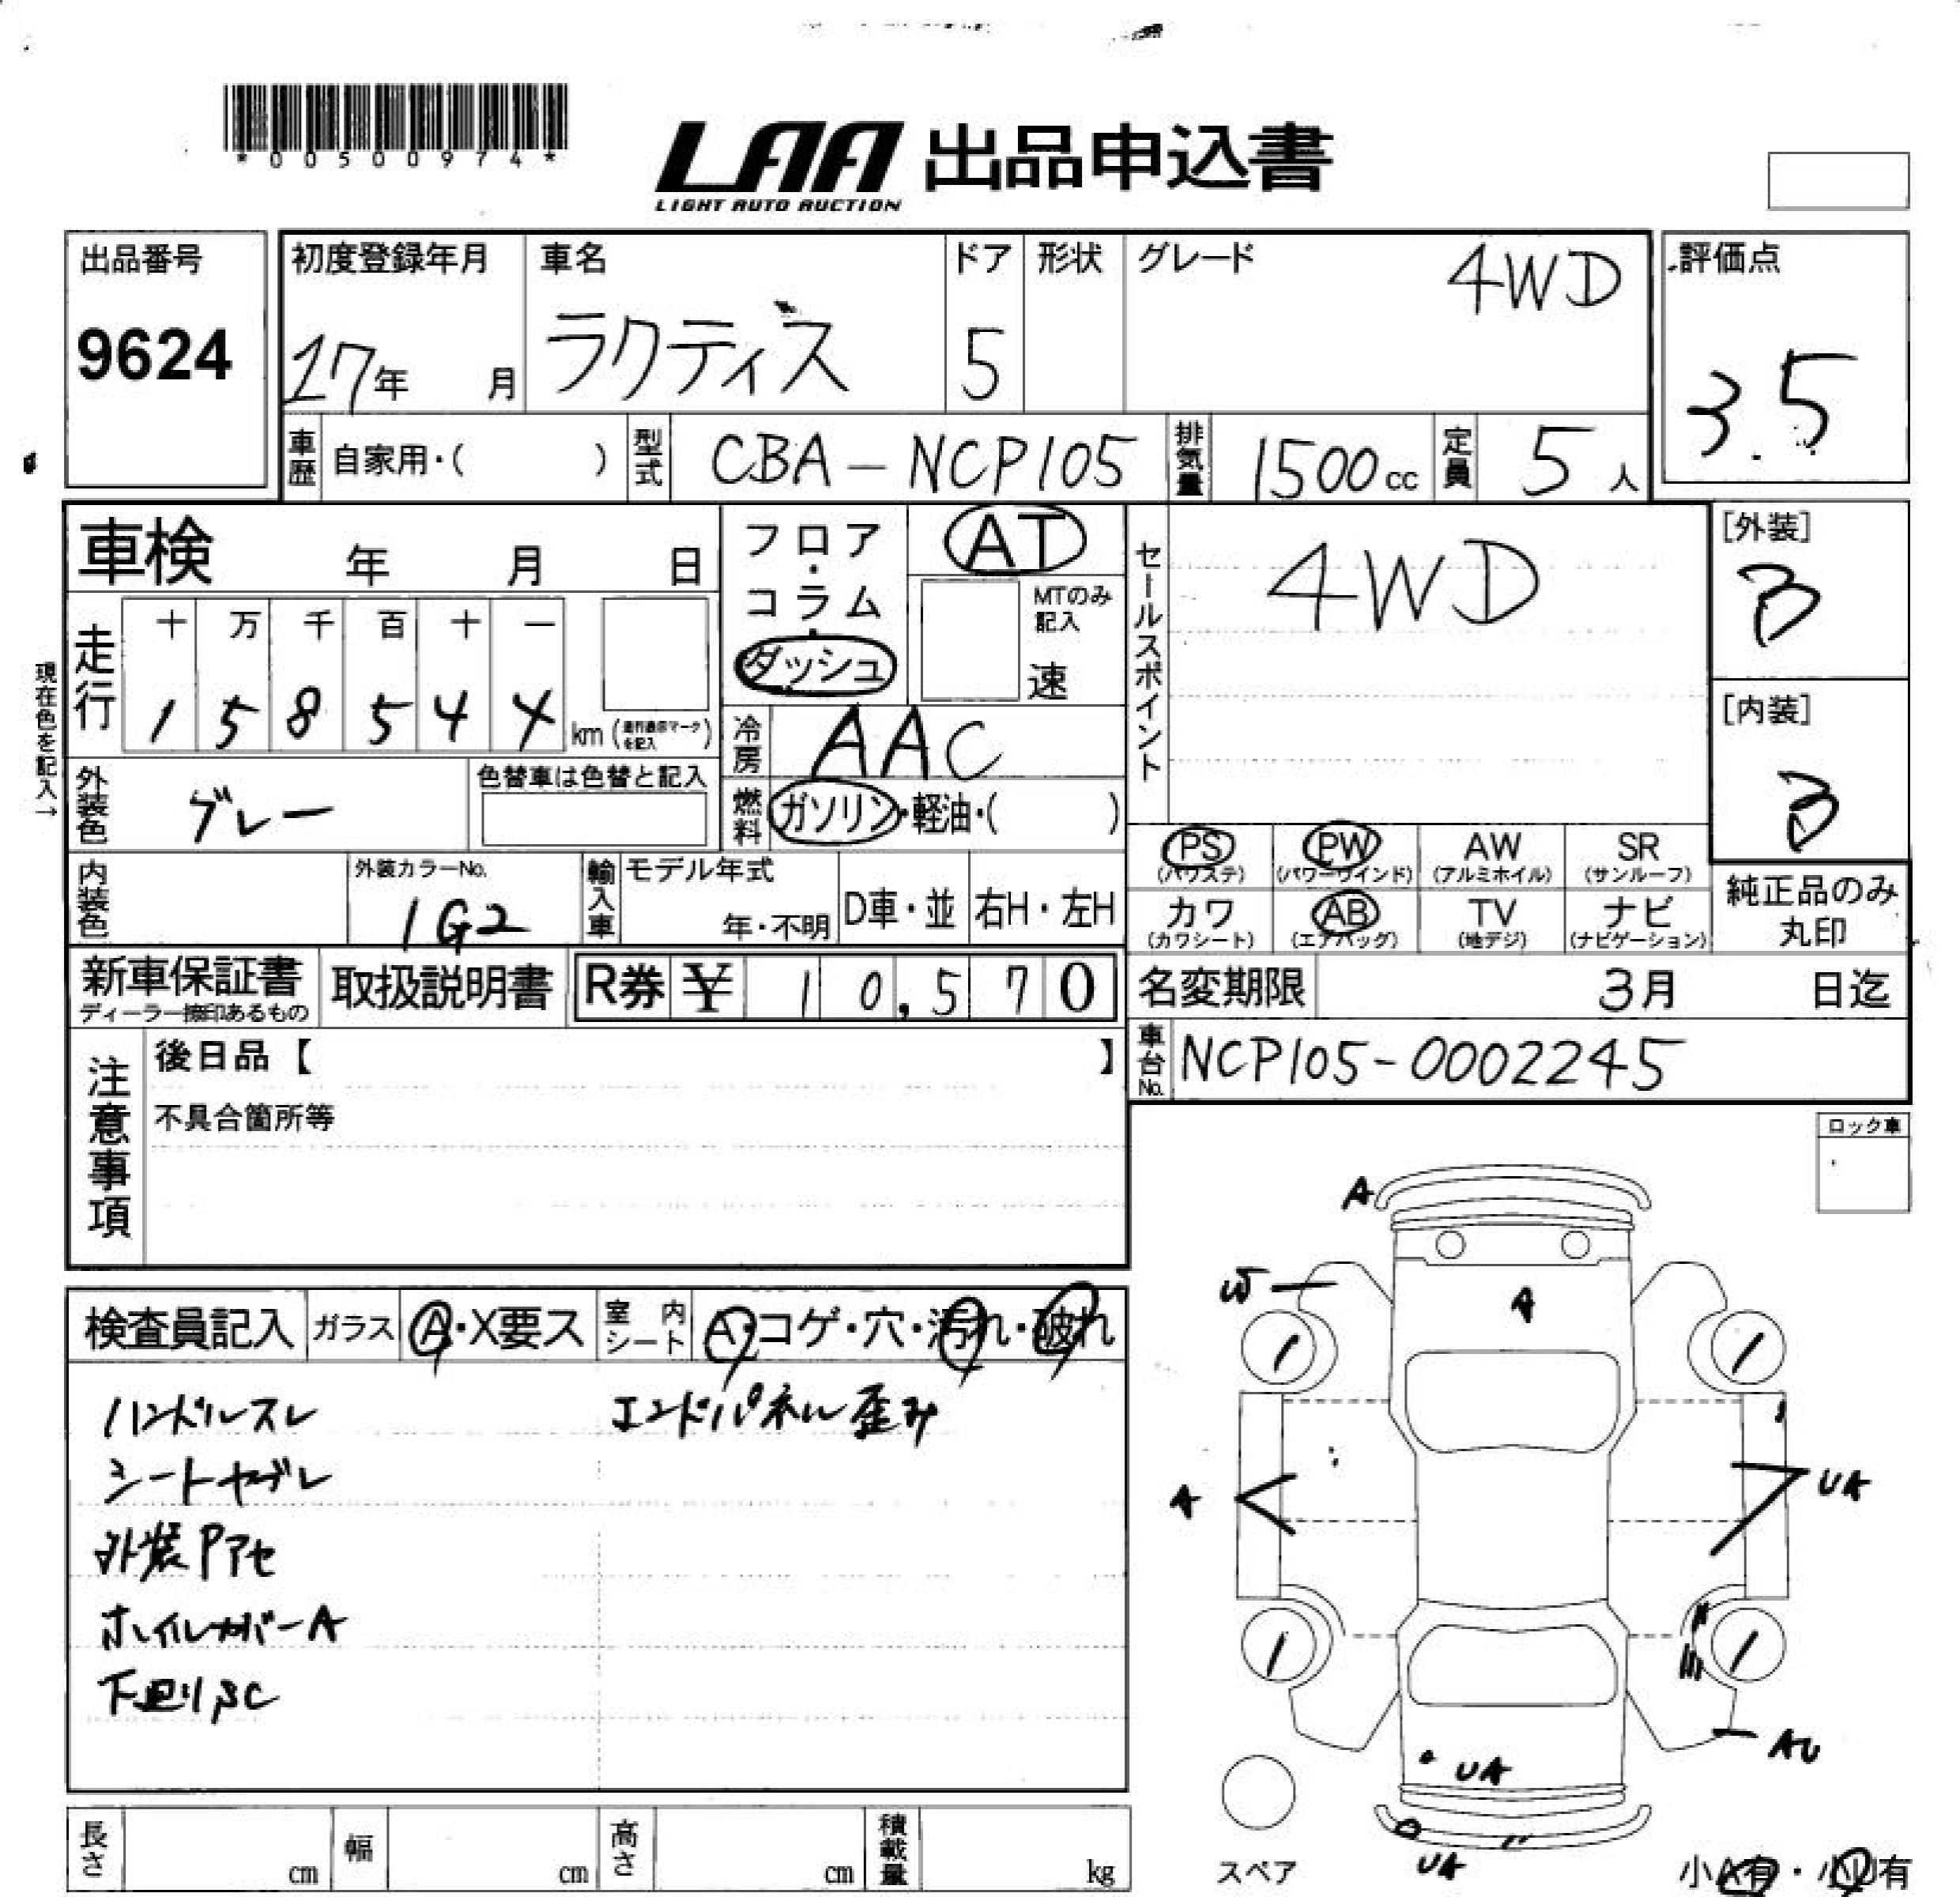 *00500974*
LAA 出品申込書
LIGHT AUTO AUCTION
出品番号
9624
初度登録年月
17年 月
車名
ラクティス
ドア
5
形状
グレード
4WD
評価点
3.5
車歴 自家用・( )
型式 CBA-NCP105
排気量 1500cc
定員 5人
車検 年 月 日
フロア・コラム・ダッシュ
AT
MTのみ記入
速
セールスポイント
4WD
[外装]
3
[内装]
3
現在色を記入→
走行
十 万 千 百 十 一
1 5 8 5 4 4 km
冷房 AAC
燃料 ガソリン・軽油・( )
外装色 グレー
色替車は色替と記入
内装色
外装カラーNo.
1G2
輸入車
モデル年式
年・不明
D車・並
右H・左H
PS PW AW SR
(パワステ) (パワーウインド) (アルミホイル) (サンルーフ)
カワ AB TV ナビ
(カワシート) (エアバッグ) (地デジ) (ナビゲーション)
純正品のみ
丸印
新車保証書
ディーラー捺印あるもの
取扱説明書
R券 ¥ 10,570
名変期限 3月 日迄
車台No. NCP105-0002245
注意事項
後日品【 】
不具合箇所等
ロック車
検査員記入
ガラス A・X要ス
室内シート A・コゲ・穴・汚れ・破れ
ハンドルスレ
エンドパネル歪み
シートヤブレ
外装Pアセ
ホイルカバーA
下回りSC
A
W
A
A
UA
AU
UA
UA
スペア
小A有・小U有
長さ cm
幅 cm
高さ cm
積載量 kg